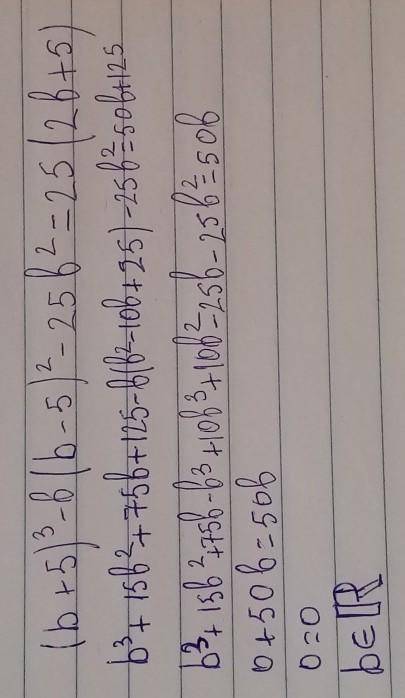 (b+5)³-b(b-5)²-25b²=25(2b+5)
b³+15b²+75b+125-b(b²-10b+25)-25b²=50b+125
b³+15b²+75b-b³+10b³+10b²-25b-25b²=50b
0+50b=50b
0=0
b∈ℝ